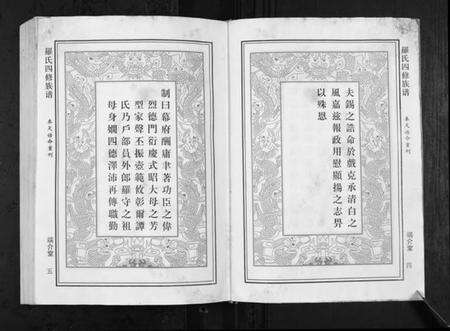 羅氏四修族谱
奉天誥命重刊
端介堂
四
夫錫之誥命於戲克承清白之
風嘉兹報政用慰顯揚之志畀
以殊恩
制曰幕府酬庸聿著功臣之偉
烈德門衍慶式昭大母之芳
型家聲丕振壺範攸彰爾譚
氏乃戶部員外郎羅守之祖
母身嫺四德澤沛再傳職勤
羅氏四修族谱
奉天誥命重刊
端介堂
五